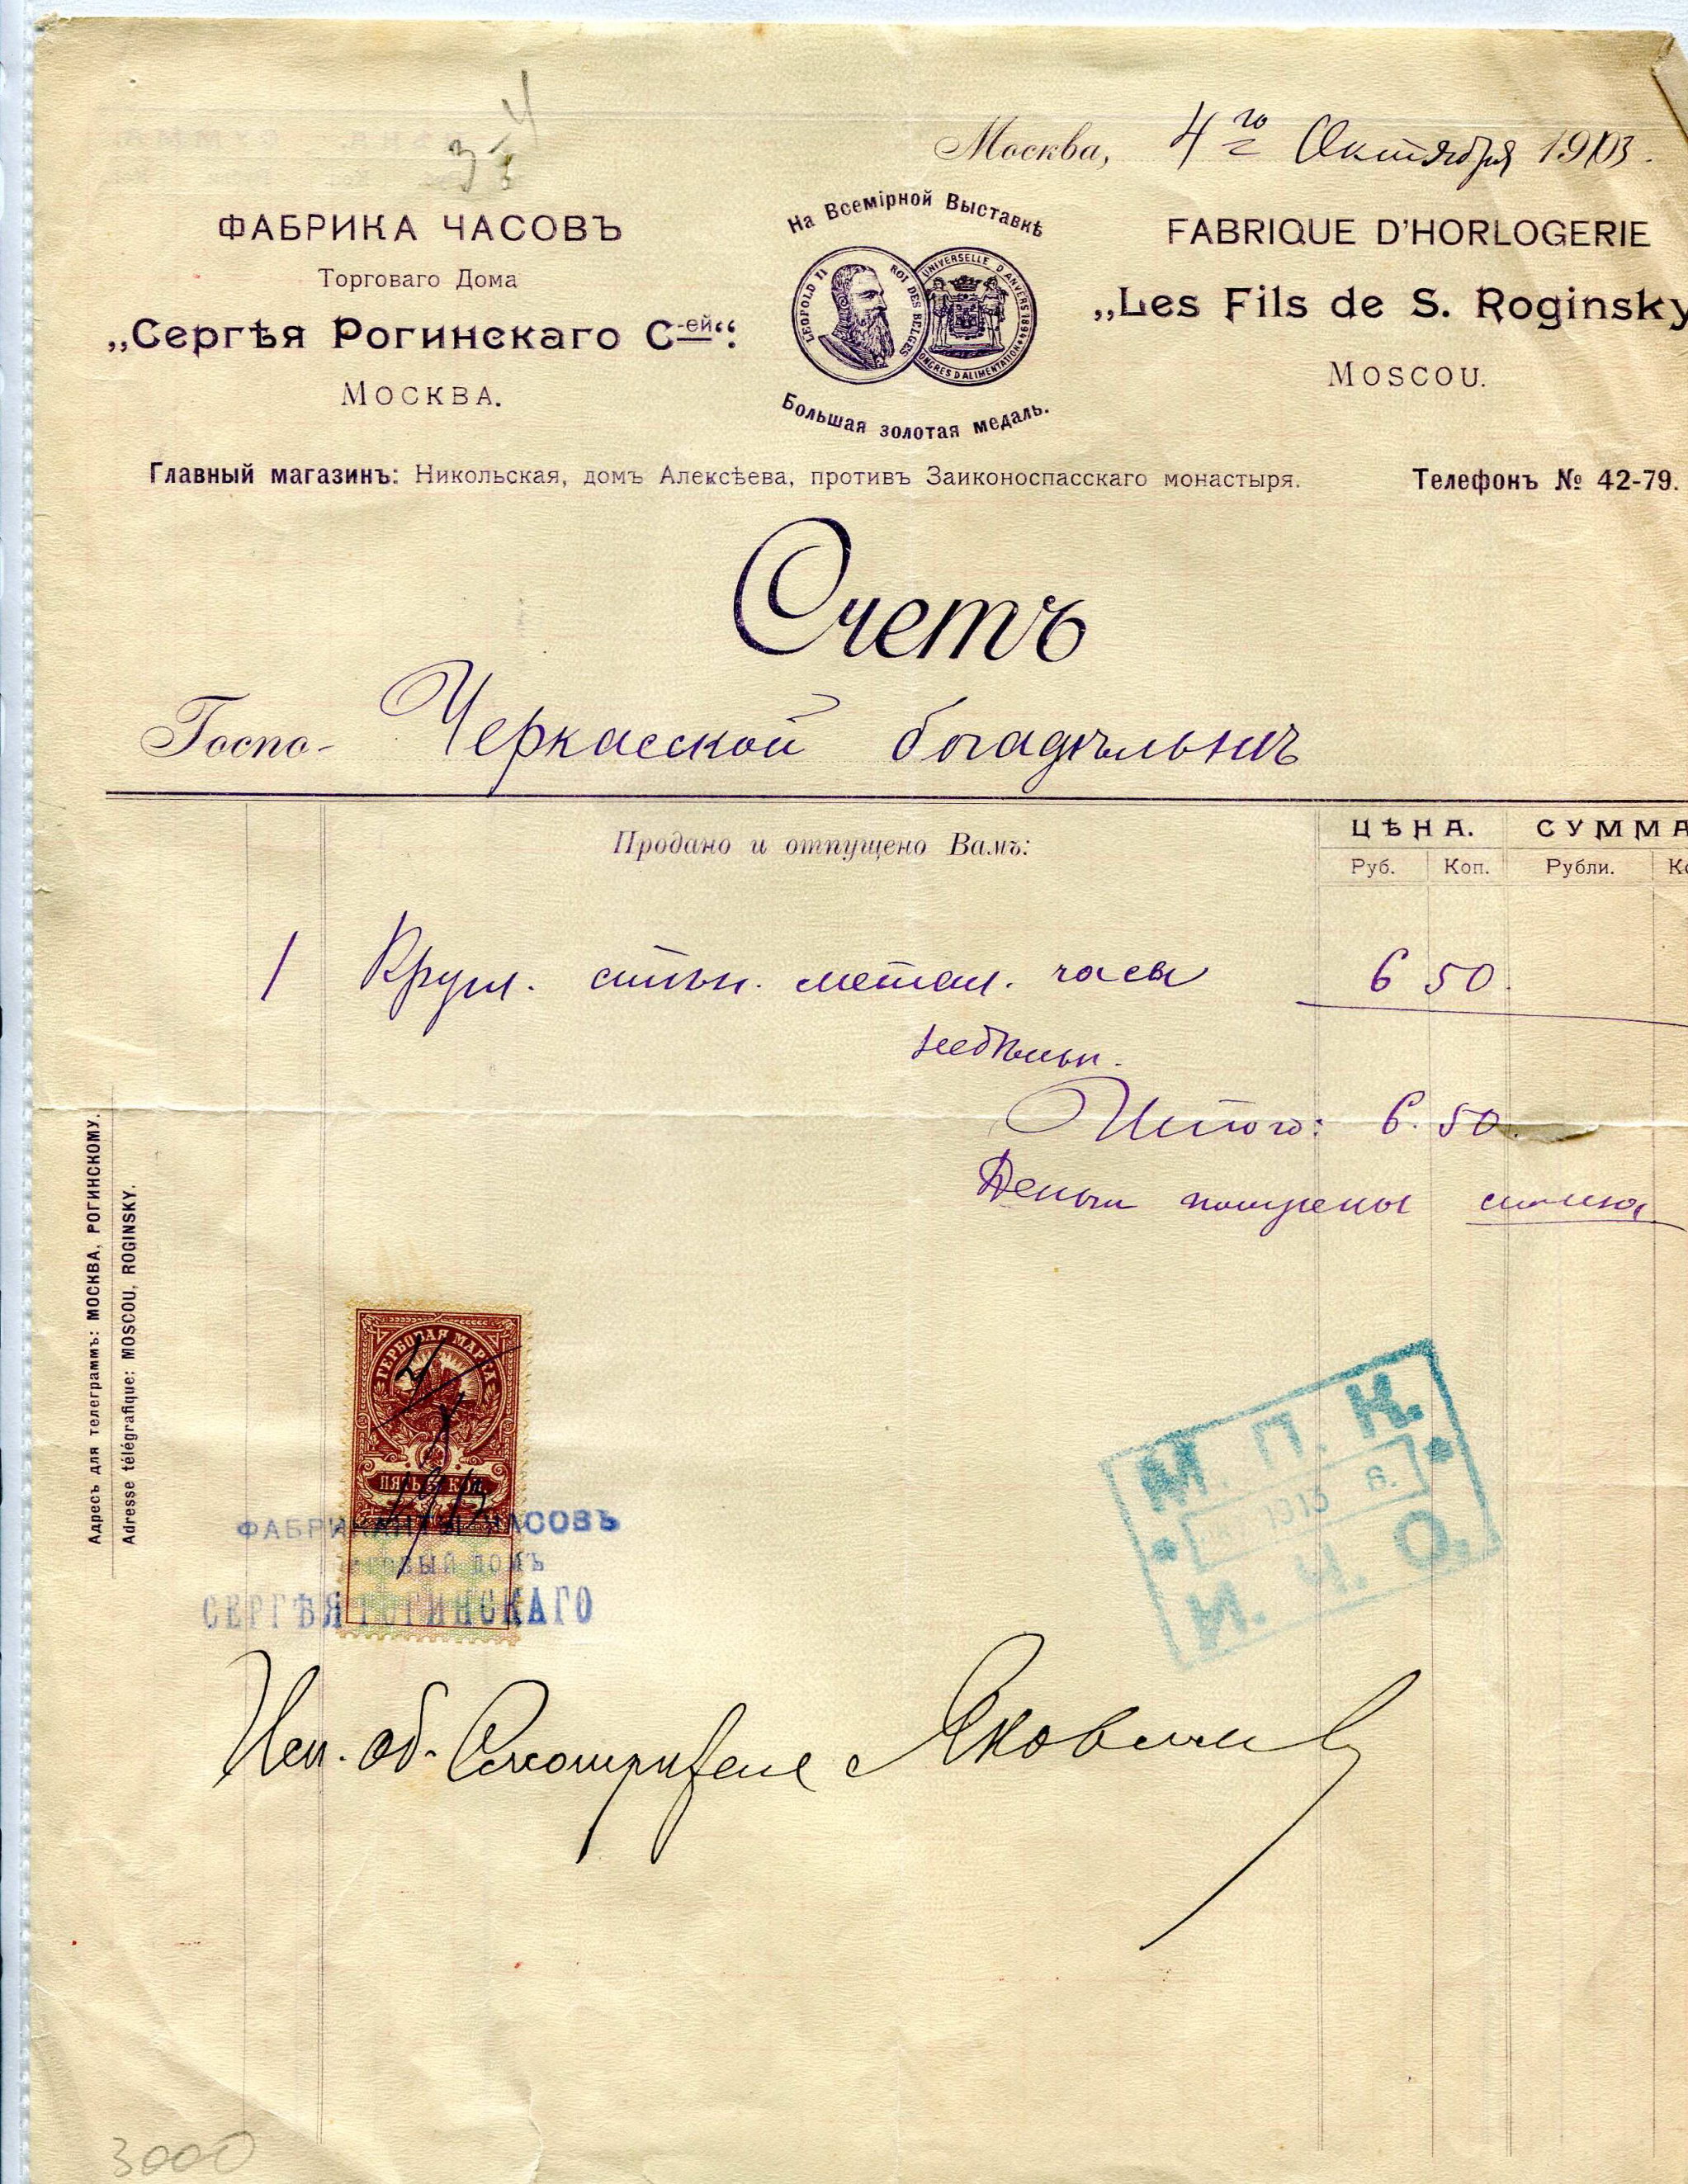 3-4
Москва, 4го Октября 1913.
ФАБРИКА ЧАСОВЪ
Торговаго Дома
„Сергѣя Рогинскаго С-ей“.
МОСКВА.
На Всемірной Выставкѣ
LEOPOLD II ROI DES BELGES
UNIVERSELLE D'ANVERS 1894
CONGRES D'ALIMENTATION
Большая золотая медаль.
FABRIQUE D'HORLOGERIE
„Les Fils de S. Roginsky
MOSCOU.
Главный магазинъ: Никольская, домъ Алексѣева, противъ Заиконоспасскаго монастыря. Телефонъ № 42-79.
Счетъ
Госпо- Черкасской богадѣльнѣ
Продано и отпущено Вамъ:
ЦѢНА. СУММА
Руб. Коп. Рубли. Ко
1 Кругл. стѣн. метал. часы 6 50.
недѣльн.
Итого: 6.50.
Деньги получены сполна
Адресъ для телеграммъ: МОСКВА, РОГИНСКОМУ.
Adresse télégrafique: MOSCOU, ROGINSKY.
ГЕРБОВАЯ МАРКА
5
ПЯТЬ КОП.
4/X 1913
ФАБРИКАНТЫ ЧАСОВЪ
Торговый домъ
СЕРГѢЯ РОГИНСКАГО
М. П. К.
1913 г.
И. Ч. О.
Исп. об. Смотрителя Яковлев
3000